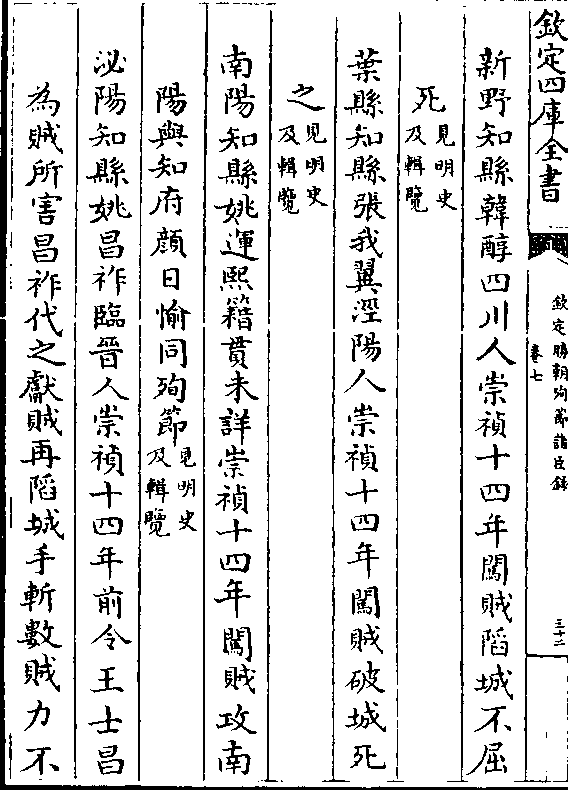 欽定四庫全書
欽定勝朝殉節諸臣録
卷七
三十二
新野知縣韓醇四川人崇禎十四年闖賊䧟城不屈
死見明史
及輯覽
葉縣知縣張我翼涇陽人崇禎十四年闖賊破城死
之見明史
及輯覽
南陽知縣姚運熙籍貫未詳崇禎十四年闖賊攻南
陽與知府顔日愉同殉節見明史
及輯覽
泌陽知縣姚昌祚臨晉人崇禎十四年前令王士昌
為賊所害昌祚代之獻賊再䧟城手斬數賊力不